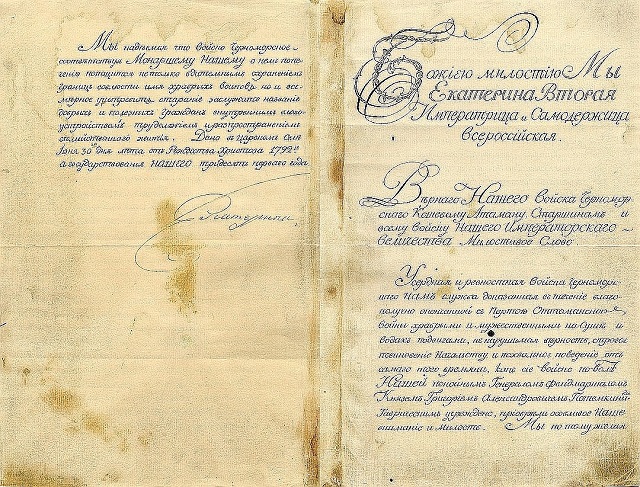 Мы надѣемся что войско Черноморское
соотвѣтствуя Монаршему Нашему о немъ попе-
ченiю потщится не только бдительнымъ охраненiемъ
границъ соблюсти имя храбрыхъ воиновъ, но и все-
мѣрное употребитъ старанiе заслужить названiе
добрыхъ и полезныхъ гражданъ внутреннимъ благо-
устройствомъ трудолюбiемъ и распространенiемъ
семейственнаго житiя. Дано въ Царскомъ Селѣ
Iюня 30го дня лѣта отъ Рождества Христова 1792е
а государствованiя НАШЕГО тридесять перваго года
Екатерина.
Божiею милостiю Мы
Екатерина Вторая
Императрица и Самодержица
всероссiйская.
Вѣрнаго Нашего войска Черномор-
скаго Кошевому Атаману, Старшинамъ и
всему войску Нашего Императорскаго
величества Милостивое Слово.
Усердная и ревностная войска Черномор-
скаго Намъ служба доказанная въ теченiе благо-
получно оконченной съ Портою Оттоманскою
войны храбрыми и мужественными на Сушѣ и
водахъ подвигами, ненарушимая вѣрность, строгое
повиновенiе Начальству и похвальное поведенiе отъ
самаго того времени, какъ сiе войско по волѣ
Нашей покойнымъ Генераломъ фельдмаршаломъ
Княземъ Григорiемъ Александровичемъ Потемкинымъ
Таврическимъ учреждено, прiобрѣли особливое Наше
вниманiе и милость. Мы по тому желая